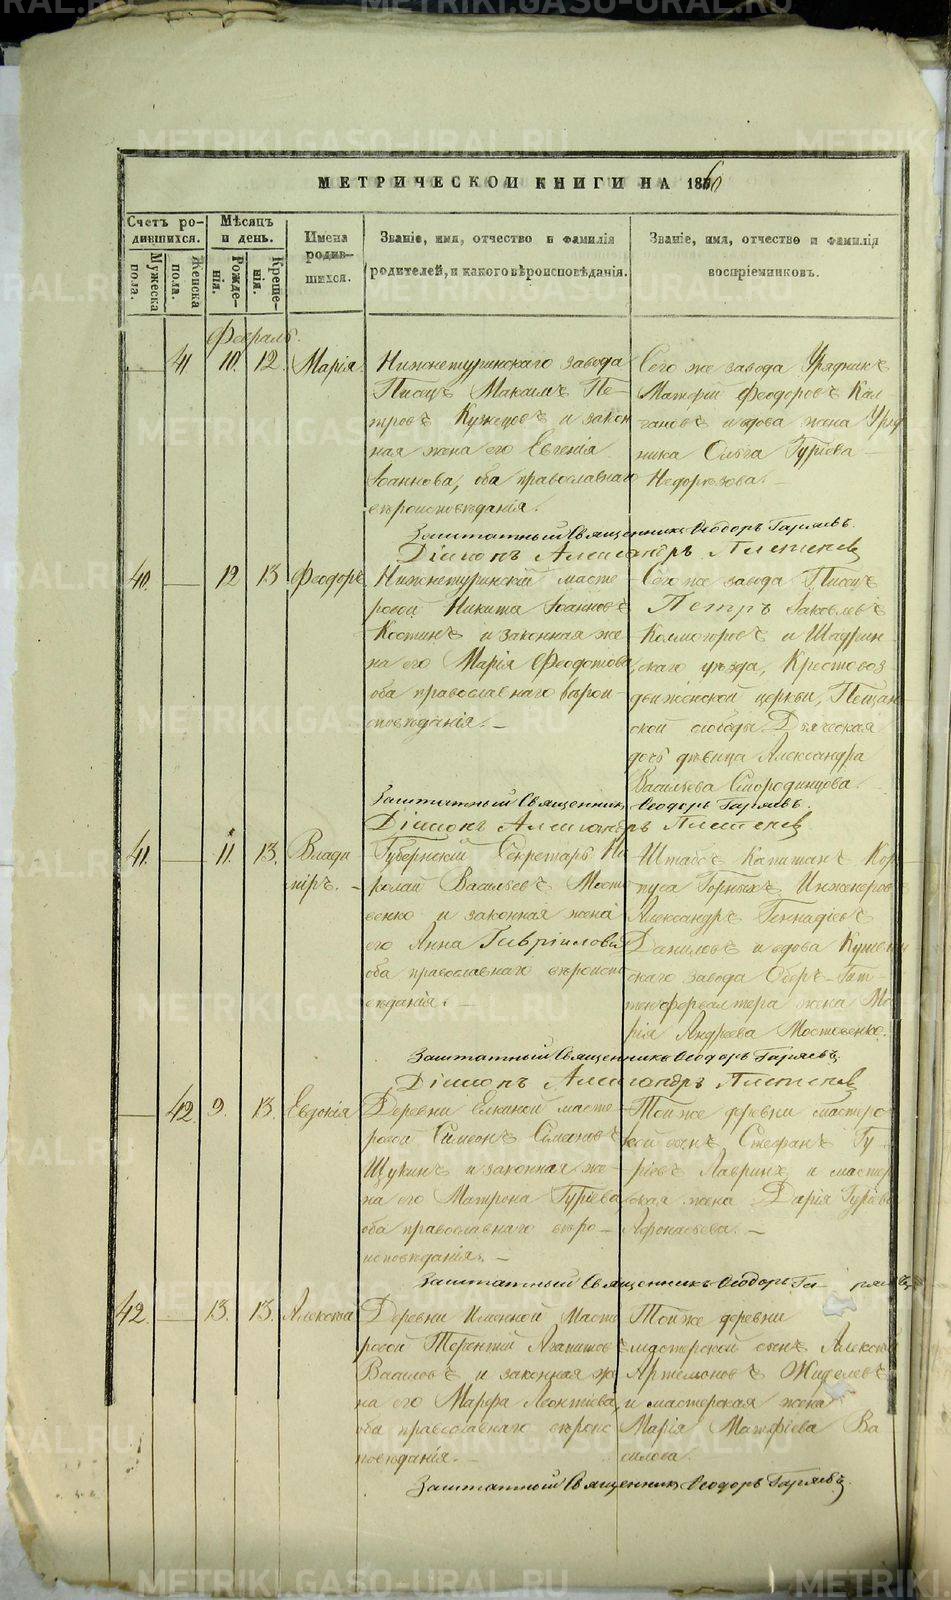 МЕТРИЧЕСКОЙ КНИГИ НА 1860
Счетъ ро-
дившихся.
Мужеска
пола.
Женска
пола.
Мѣсяцъ
и день.
Рожде-
нія.
Креще-
нія.
Имена
родив-
шихся.
Званіе, имя, отчество и фамилія
родителей, и какого вѣроисповѣданія.
Званіе, имя, отчество и фамилія
воспріемниковъ.
Февраль.
41 10. 12. Марія.
Нижнетуринскаго завода
Писецъ Максимъ Пе-
тровъ Кузнецовъ и закон
ная жена его Евгенія
Іоаннова, оба православнаго
вѣроисповѣданія.
Сего же завода Урядникъ
Матфій Феодоровъ Кал-
гановъ и вдова жена Уряд
ника Ольга Гуріева
Недорезова.
Заштатный Священникъ Ѳеодоръ Гаряевъ.
Діаконъ Александръ
40. 12 13 Феодоръ
Нижнетуринскій масте
ровой Никита Іоанновъ
Костинъ и законная же
на его Марія Феодотова
оба православнаго вѣрои-
сповѣданія. –
Сего же завода Писецъ
Петръ Іаковлевъ
Колмогоровъ и Шадрин
скаго уѣзда, Крестовоз
движенской церкви, Песчан
ской слободы Дьяческая
дочь дѣвица Александра
Васильева Смородинцова.
Заштатный Священникъ Ѳеодоръ Гаряевъ.
Діаконъ Александръ
41. 11. 13. Влади
міръ. –
Губернскій Секретарь Ни
колай Васильевъ Мосто
венко и законная жена
его Анна Гавріилова
оба православнаго вѣроиспо
вѣданія. –
Штабсъ Капитанъ Кор
пуса Горныхъ Инженеровъ
Александръ Геннадіевъ
Даниловъ и вдова Кушвин
скаго завода Оберъ-Гит-
тенфервалтера жена Ма
рія Андреева Мостовенко.
Заштатный Священникъ Ѳеодоръ Гаряевъ.
Діаконъ Александръ
42 9. 13. Евдокія
Деревни Елкиной масте-
ровой Симеонъ Симановъ
Щукинъ и законная же-
на его Матрона Гуріева
оба православнаго вѣро-
исповѣданія. –
Той же деревни мастеро
вой сынъ Стефанъ Гу-
ріевъ Лавринъ и мастер
овая жена Дарія Гуріева
Афонасьева. –
Заштатный Священникъ Ѳеодоръ Гаряевъ
42. 13. 13. Алексій
Деревни Масте
ровой Терентій Агапитовъ
Василовъ и законная же
на его Марфа Леонтіева,
оба православнаго вѣроис
повѣданія. –
Той же деревни
мастерской сынъ Алексій
Артемоновъ Жиделевъ
и мастерская жена
Марія Матфіева Ва
силова.
Заштатный Священникъ Ѳеодоръ Гаряевъ.
METRIKI.GASO-URAL.RU